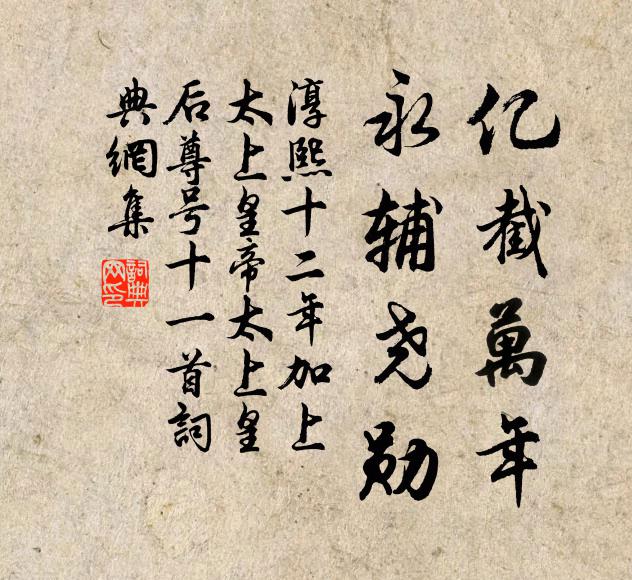 亿載萬年
永辅尧勋
淳熙十二年加上
太上皇帝太上皇
后尊号十一首詞
典網集
詞典
网印